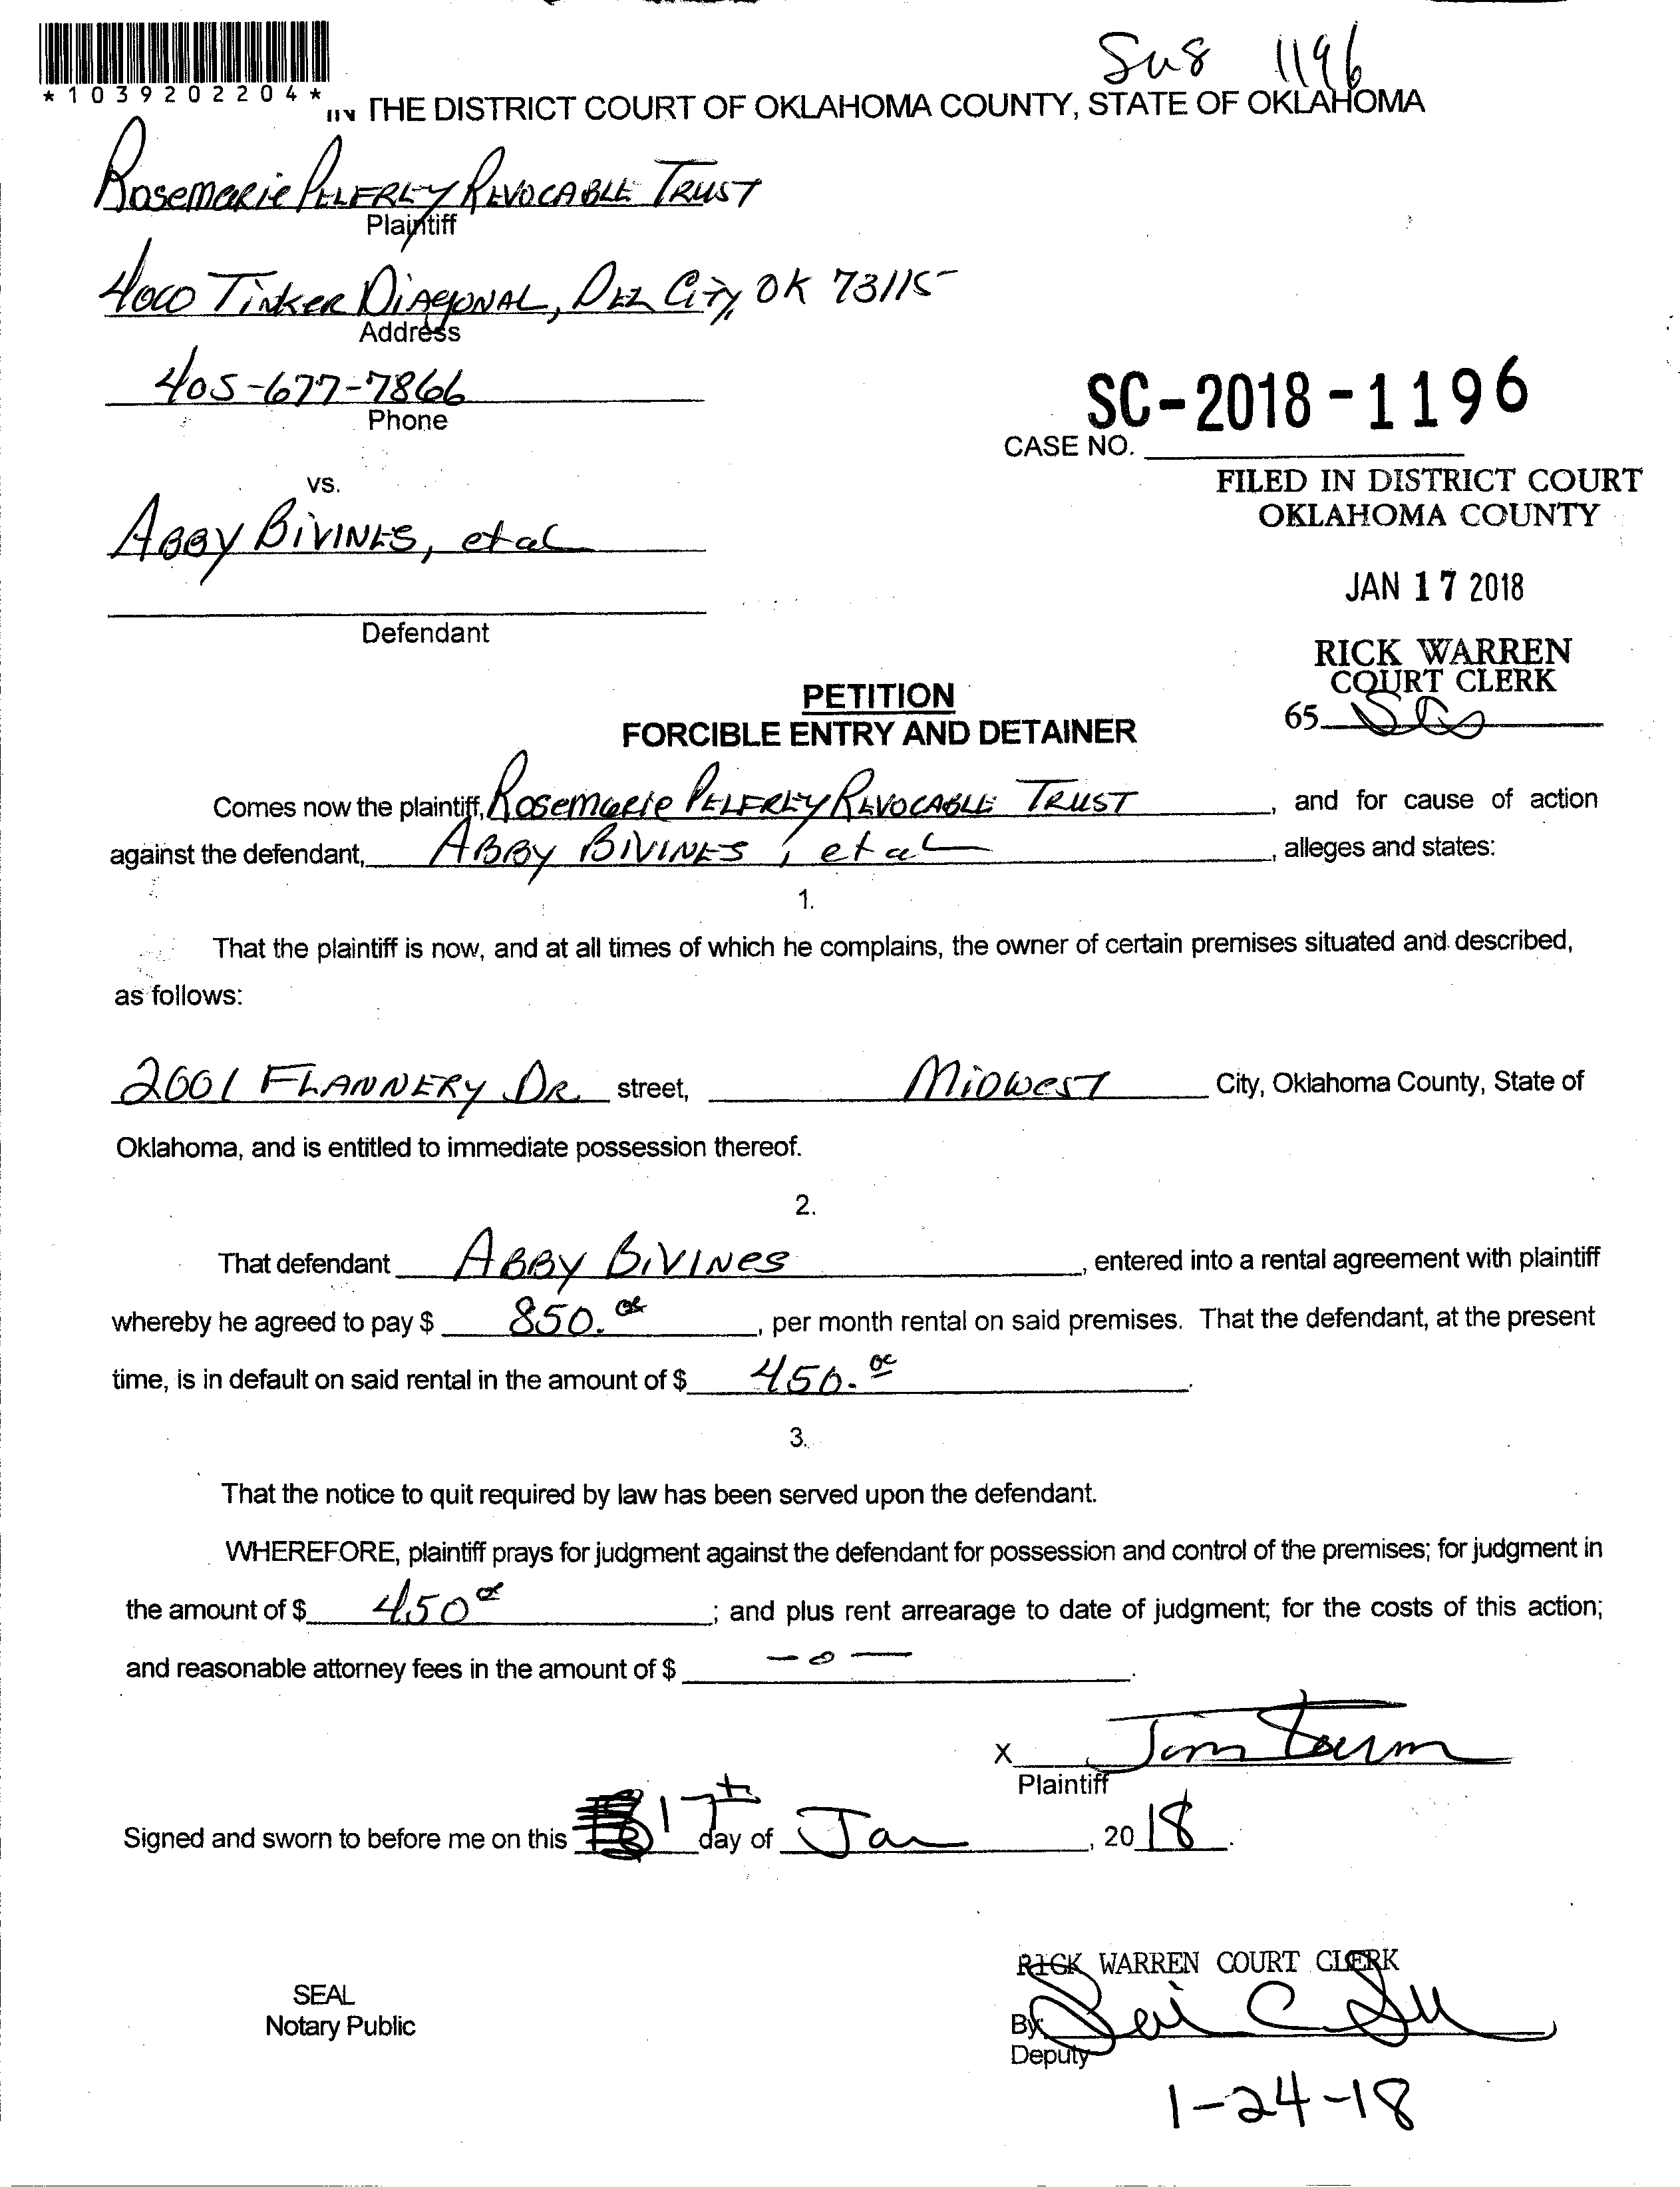 Su8 1196
*1039202204*
IN THE DISTRICT COURT OF OKLAHOMA COUNTY, STATE OF OKLAHOMA
Rosemarie Pelfrey Revocable Trust
Plaintiff
4000 Tinker Diagonal, Del City, OK 73115
Address
405-677-7866
Phone
SC-2018-1196
CASE NO.
vs.
FILED IN DISTRICT COURT
OKLAHOMA COUNTY
Abby Bivines, et al
JAN 17 2018
Defendant
RICK WARREN
COURT CLERK
65
PETITION
FORCIBLE ENTRY AND DETAINER
Comes now the plaintiff, Rosemarie Pelfrey Revocable Trust, and for cause of action
against the defendant, Abby Bivines, et al, alleges and states:
1.
That the plaintiff is now, and at all times of which he complains, the owner of certain premises situated and described,
as follows:
2601 Flannery Dr. street, Midwest City, Oklahoma County, State of
Oklahoma, and is entitled to immediate possession thereof.
2.
That defendant Abby Bivines, entered into a rental agreement with plaintiff
whereby he agreed to pay $ 850.00, per month rental on said premises. That the defendant, at the present
time, is in default on said rental in the amount of $ 450.00.
3.
That the notice to quit required by law has been served upon the defendant.
WHEREFORE, plaintiff prays for judgment against the defendant for possession and control of the premises; for judgment in
the amount of $ 450 00; and plus rent arrearage to date of judgment; for the costs of this action;
and reasonable attorney fees in the amount of $ -0-.
X
Plaintiff
Signed and sworn to before me on this 17th day of Jan, 2018.
RICK WARREN COURT CLERK
SEAL
Notary Public
By
Deputy
1-24-18